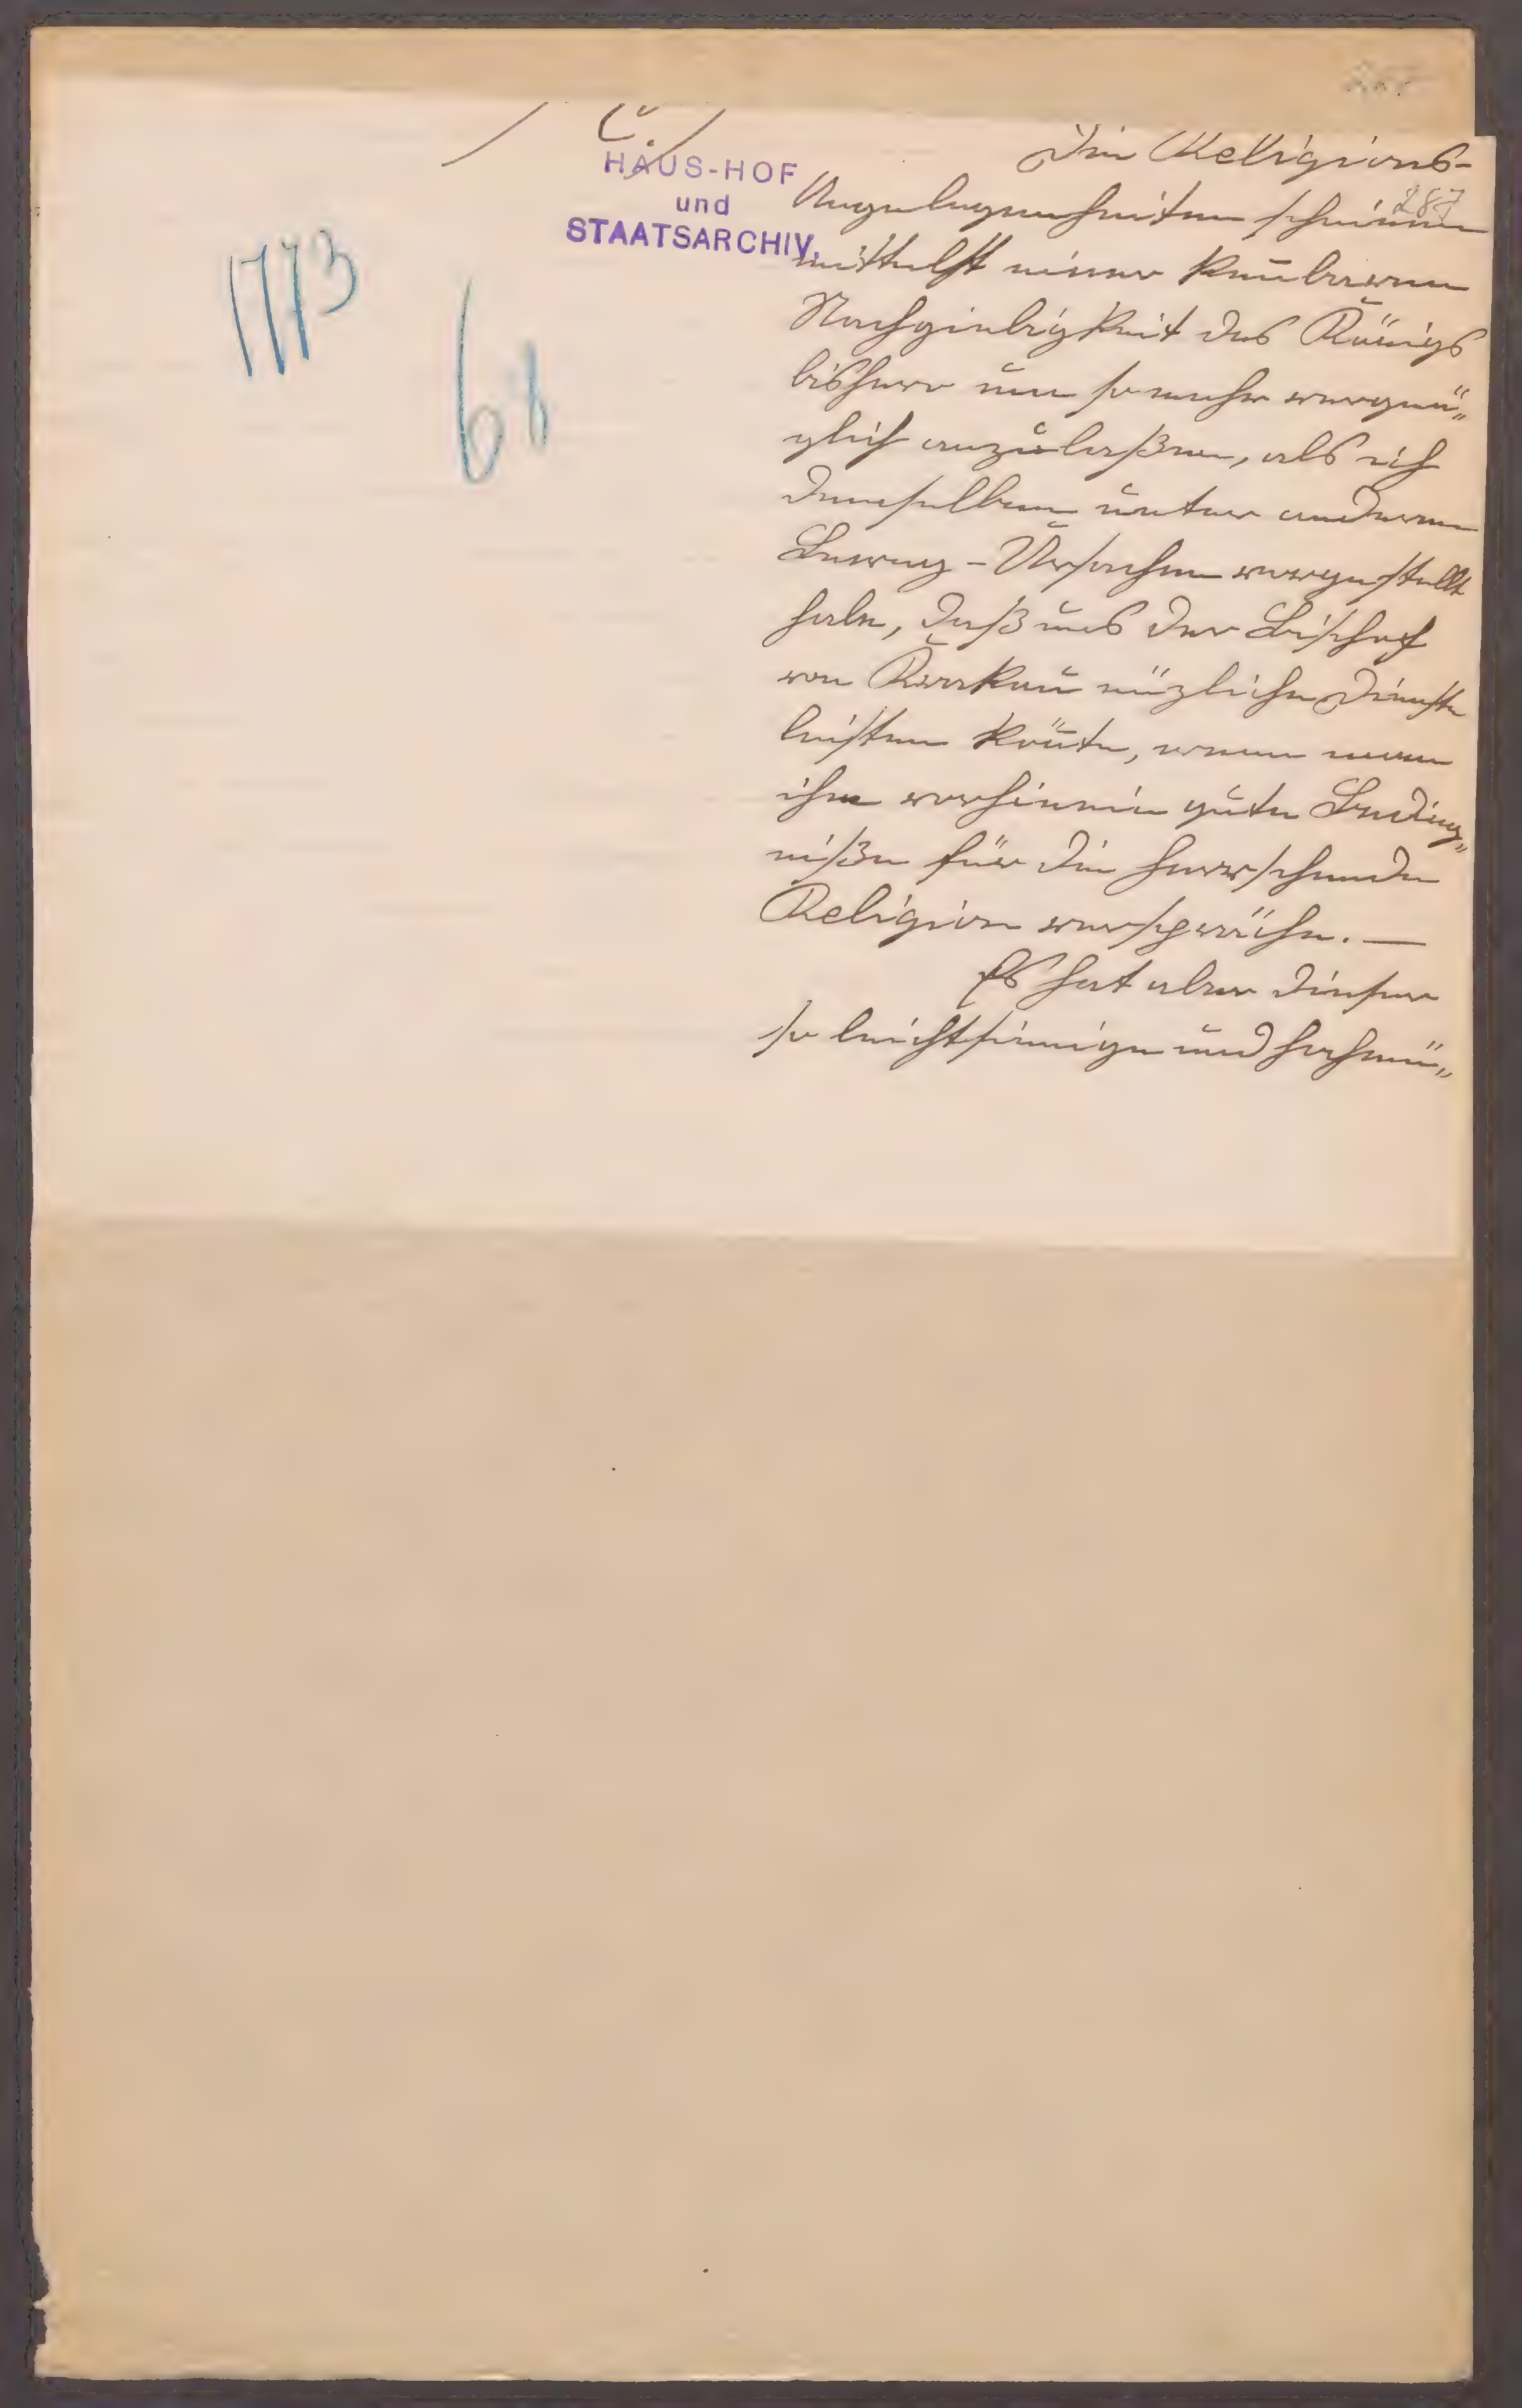 C./.
HAUS-HOF
und
STAATSARCHIV.
1773
68
287
Die Religions-
Angelegenheiten scheinen
mittelst einer kenbaren
Nachgiebigkeit des Königs
bishero um so mehr vergnü„
glich anzulaßen, als ich
demselben unter anderen
Beweg-Ursachen vorgestellt
habe, daß uns der Bischof
von Krakau nüzliche Dienste
leisten könte, wenn man
ihm vorhinein gute Beding„
niße für die herrschende
Religion verspräche. —
Es hat aber dieser
so leichtsinnige und hochmü„